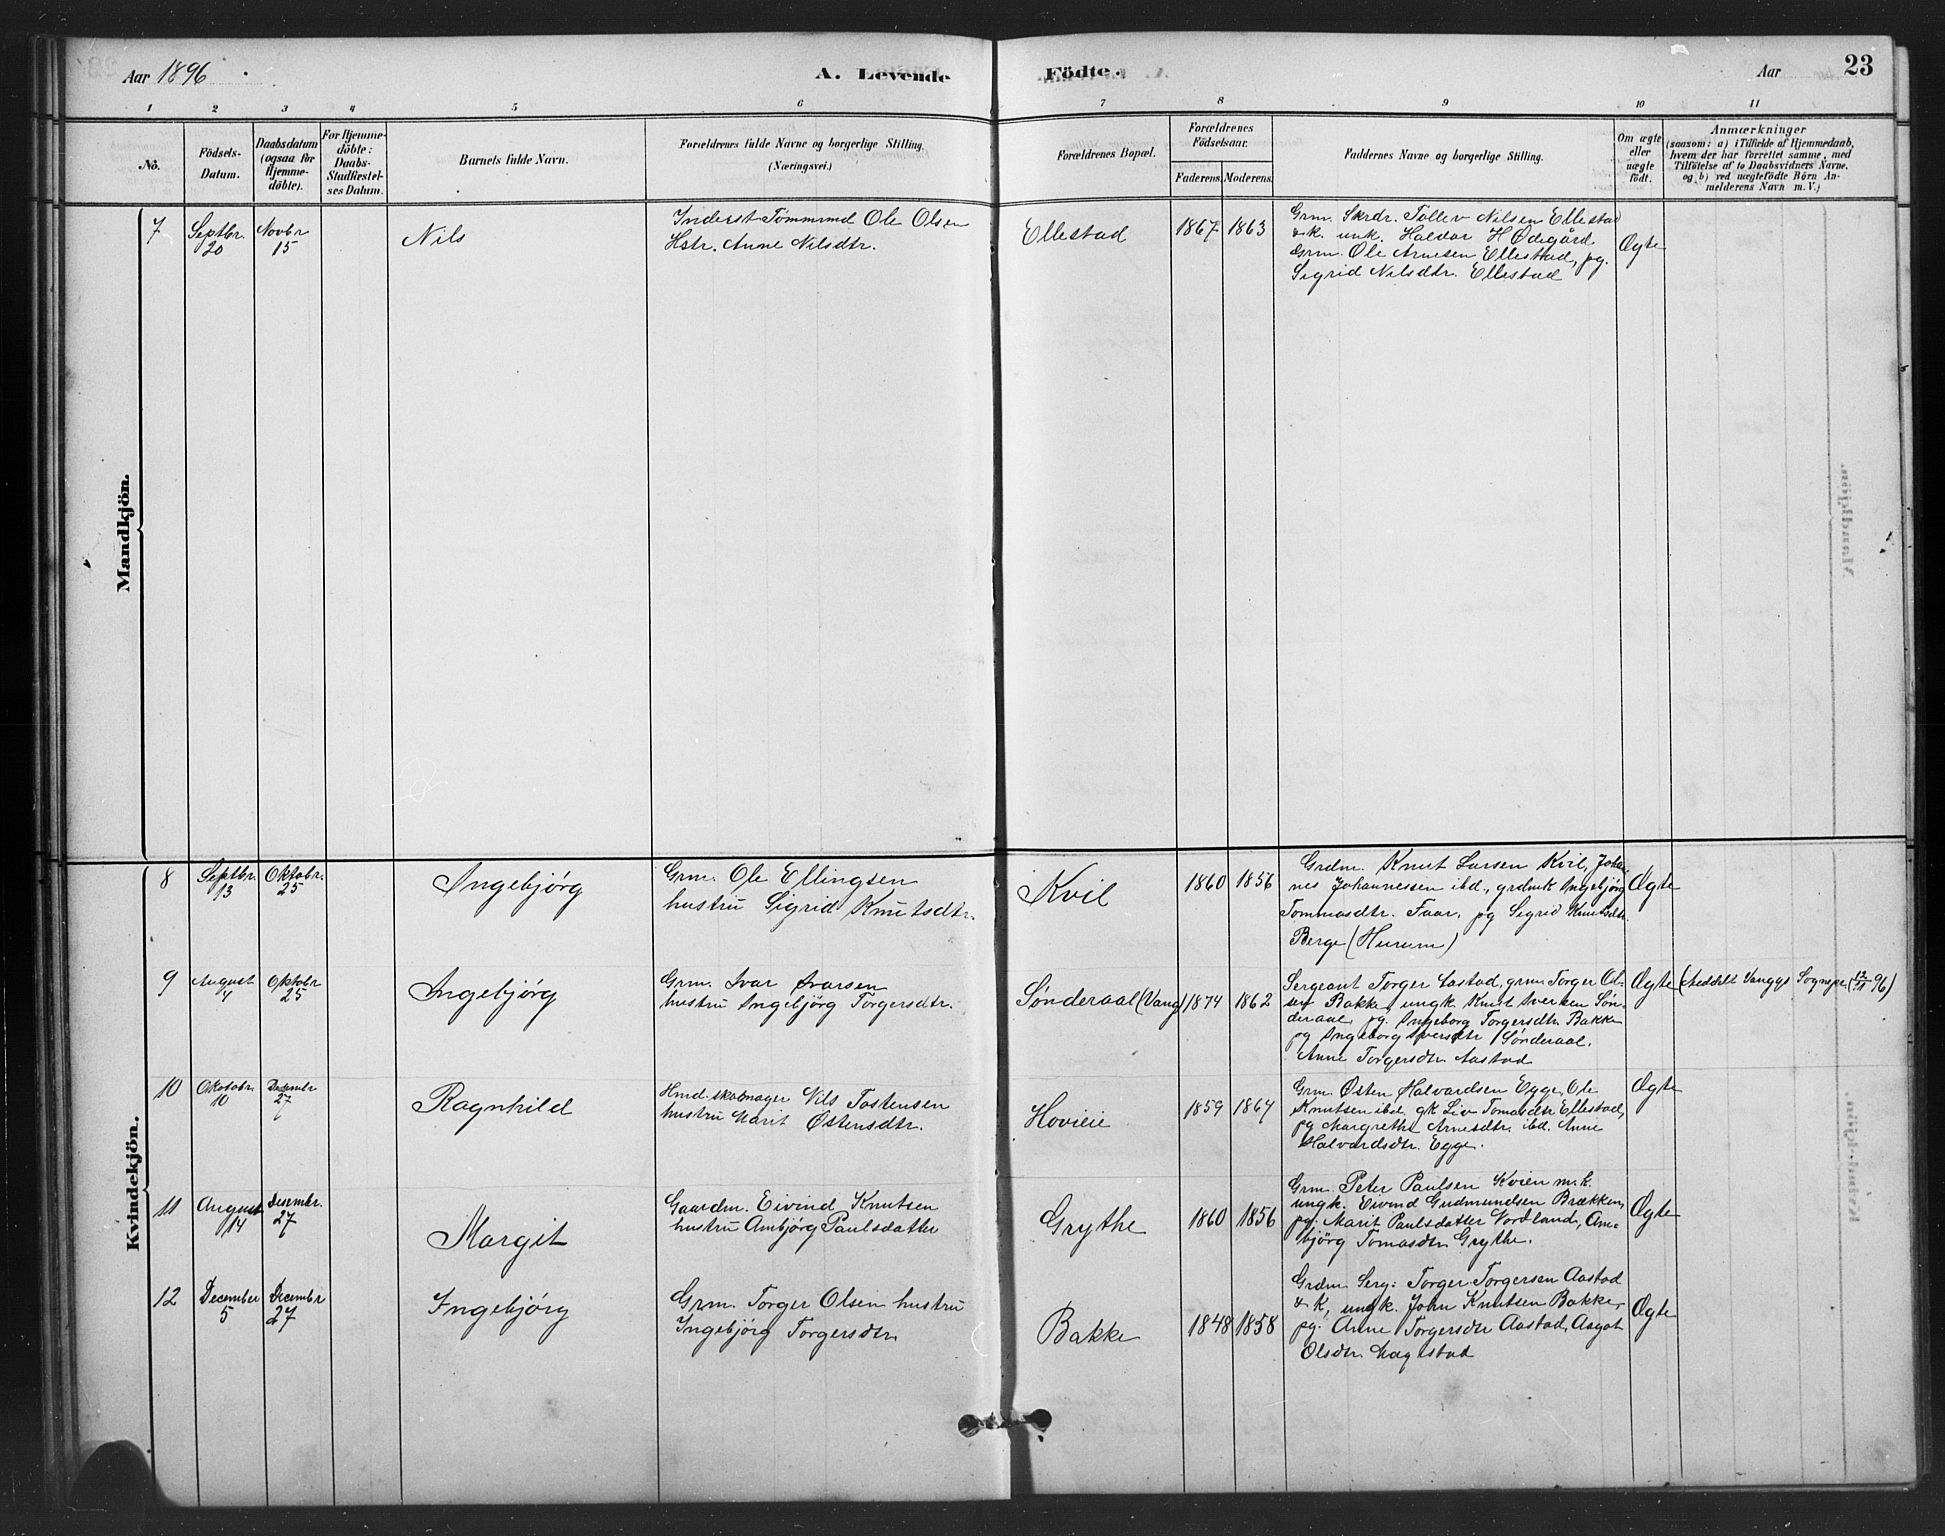 Aar 1896.
A. Levende
Födte.
Aar
23
1 2 3 4 5 6 7 8 9 10 11
No.
Födsels-Datum.
Daabsdatum (ogsaa for Hjemmedöbte).
For Hjemmedöbte: Daabs-Stadfæstelses Datum.
Barnets fulde Navn.
Forældrenes fulde Navne og borgerlige Stilling. (Næringsvei.)
Forældrenes Bopæl.
Forældrenes Födselsaar.
Faderens. Moderens.
Faddernes Navne og borgerlige Stilling.
Om ægte eller uægte født.
Anmærkninger
(saasom: a) i Tilfælde af Hjemmedaab,
hvem der har forrettet samme, med
Tilföielse af to Daabsvidners Navne,
og b) ved uægtefödte Börn Anmelderens Navn m. V.)
Mandkjön.
7
Septbr. 20
Novbr 15
Nils
Inderst Tømmrmd Ole Olsen
Hstr. Anne Nilsdtr.
Ellestad
1867
1863
Grm. Skrdr. Tollev Nilsen Ellestad
& k. unk. Haldor H Ødegård
Grm. Ole Arnesen Ellestad, pg.
Sigrid Nilsdtr. Ellestad
Ægte
Kvindekjön.
8
Septbr. 13
Oktobr. 25
Ingebjørg
Grm. Ole Ellingsen
hustru Sigrid Knutsdtr.
Kvil
1860
1856
Grdm. Knut Larsen Kvil, Johan
nes Johannessen ibd., grdmk Ingebjørg
Tommasdtr. Faar, pg Sigrid Knutsdtr.
Berge (Hurum)
Ægte
9
August 4
Oktobr 25
Ingebjørg
Grm. Ivar Ivarsen
hustru Ingebjørg Torgersdtr.
Sønderaal (Vang)
1874
1862
Sergeant Torger Aastad, grm Torger Ol-
sen Bakke, ungk. Knut Iverken Søn-
deraal, pg. Ingeborg Torgersdtr. Bakke
pg Ingeborg Iversdtr Sønderaal.
Anne Torgersdtr Aastad
Ægte
(Meddelt Vanggs Sognepr. 96)
10
Oktobr. 10
Desember 27
Ragnhild
Hmd. skomager Nils Tostensen
hustru Marit Østensdtr.
Hovieie
1859
1864
Grm. Østen Halvardsen Egge, Ole
Knutsen ibd, gk Liv Tomasdtr Ellestad,
pg Margrethe Arnesdtr. ibd. Anne
Halvardsdtr. Egge.
Ægte
11
August 14
Desembr. 27
Margit
Gaardm. Eivind Knutsen
hustru Ambjørg Paulsdatter
Grythe
1860
1856
Grm. Peter Paulsen Kvien m. k.
ungk. Eivind Gudmundsen Brækken,
pg. Marit Paulsdatter Nordland, Am-
bjørg Tomasdtr Grythe.
Ægte
12
December 5
December 27
Ingebjørg
Grm. Torger Olsen hustru
Ingebjørg Torgersdtr
Bakke
1848
1858
Grdm Serg: Torger Torgersen Aastad
& K, ungk. John Knutsen Bakke,
pg. Anne Torgersdtr Aastad, Aagot
Olsdtr. Magistad
Ægte